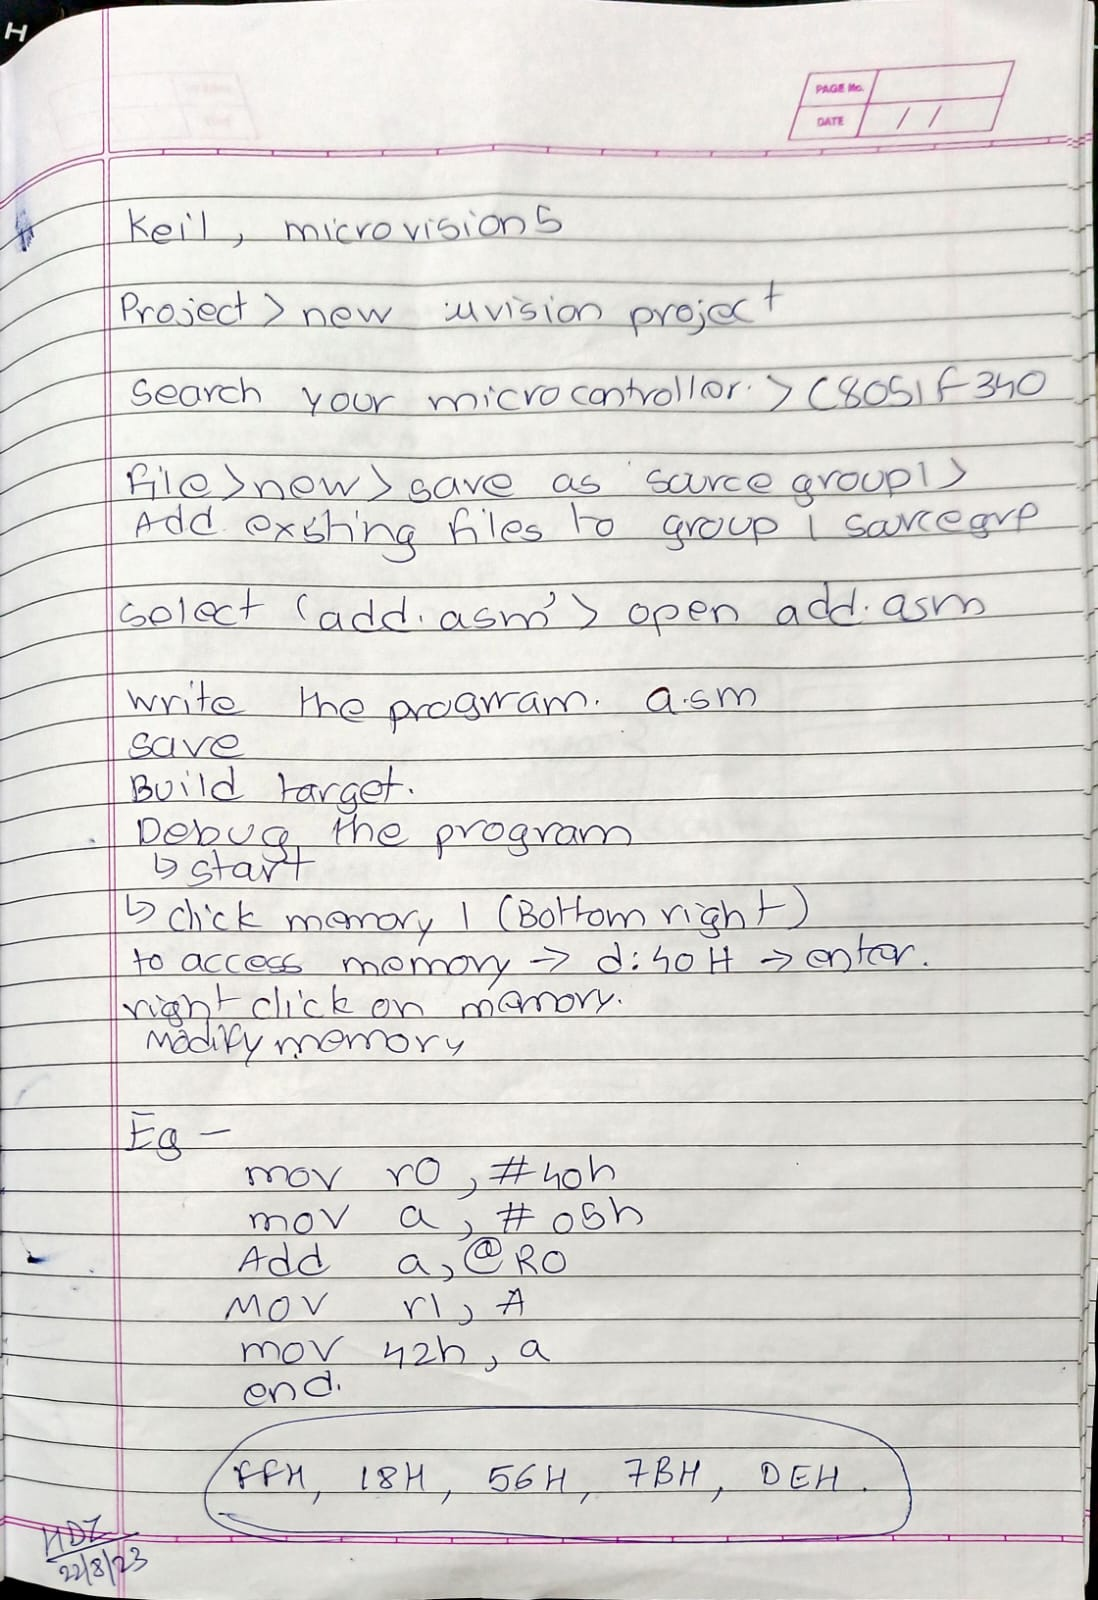 H
PAGE No.
DATE / /
Keil, microvision5
Project > new uvision project
Search your microcontroller. > C8051F340
File > new > save as sarce group1 >
Add existing files to group 1 sarcegrp
select 'add.asm' > open add.asm
write the program. a.sm
save
Build target.
Debug the program
↳ start
↳ click memory 1 (Bottom right)
to access memory → d:40H → enter.
right click on memory.
Modify memory
Eg -
mov r0, #40h
mov a, #05h
Add a, @R0
MOV r1, A
mov 42h, a
end.
FFH, 18H, 56H, 7BH, DEH.
HDZ
22/8/23